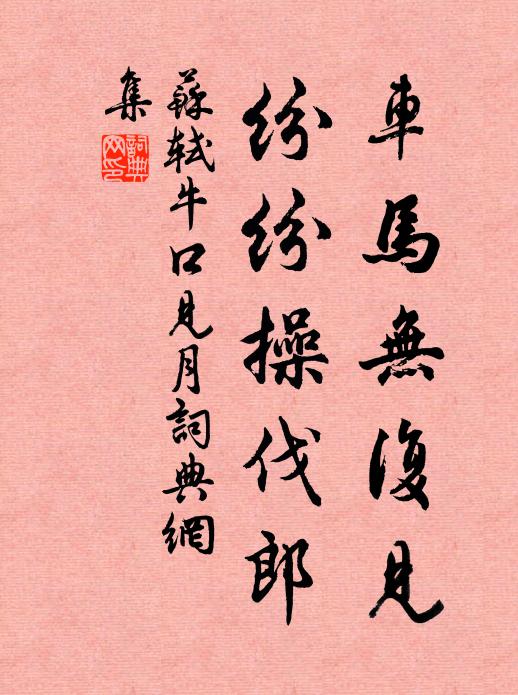 車馬無復見
紛紛操伐郎
蘇軾牛口見月詞典網
集
詞典
网印